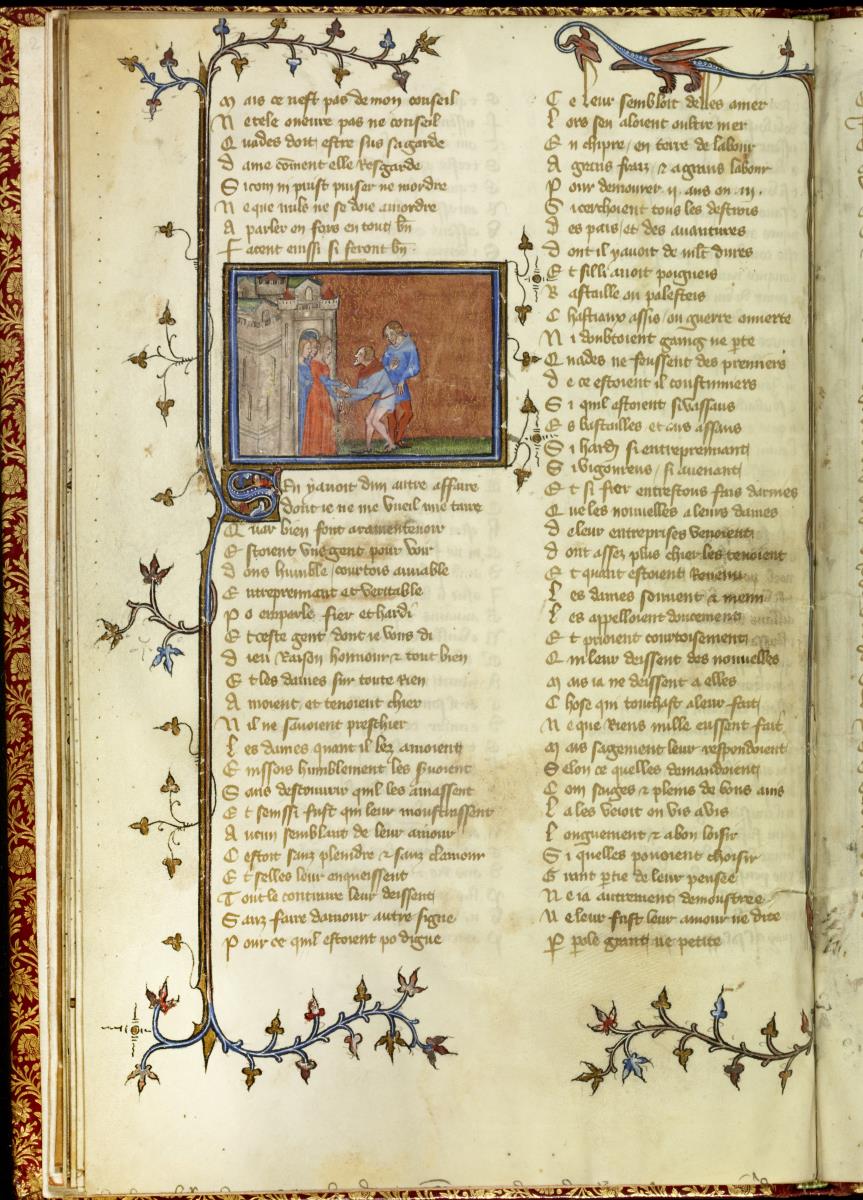 M ais ce nest pas de mon conseil
N e tele oneure pas ne conseil
Q uades doit estre sus sa garde
D ame cōment elle resgarde
S i com ni puist puiser ne mordre
N e que nuls ne se doie amordre
A parler en fors en tout bn
F acent einssi si feront bn
S En y auoit dun autre affaire
Dont ie ne me vueil mie taire
Q uar bien font a ramentenoir
E stoient vne gent pour voir
D ons humble courtois amiable
E ntreprennant et veritable
P o emparle fier et hardi
E t ceste gent dont ie vous di
D ieu Raison honnour & tout bien
E t les dames sur toute rien
A moient et tenoient chier
N il ne sauoient preschier
L es dames quant il lez amoient
E inssois humblement les seruoient
S ans descouurir quil les amassent
E t senssi fust qui leur moustrassent
A ucun semblant de leur amour
C estoit sanz pleindre & sanz clamour
E t selles leur enqueissent
T out le contraire leur deissent
S anz faire damour autre signe
P our ce quil estoient po digne
C e leur sembloit delles amer
L ors sen aloient oultre mer
E n chipre en terre de labour
A grans fraiz & a grans labour
P our demourer .ii. ans ou .iii.
S i cerchoient tous les destrois
D es pais et des auantures
D ont il yauoit de mlt dures
E t sill auoit poigneis
B astaille ou palesteis
C hastiaux assis ou guerre ouuerte
N i doubtoient gaaig ne pte
Q uades ne feussent des premiers
D e ce estoient il coustumiers
S i quil estoient si vassaus
E s bastailles et aus assaus
S i hardi si entreprennant
S i vigoureus si auenant
E t si fier entrestous fais darmes
Q ue les nouuelles a leurs dames
D e leur entreprises venoient
D ont assez plus chier les tenoient
E t quant estoient Reuenu
L es dames souuent & menu
L es appelloient doucement
E t prioient courtoisement
Q ui leur deissent des nouuelles
M ais ia ne deissent a elles
C hose qui touchast a leur fait
N e que riens nulle eussent fait
M ais sagement leur respondoient
S elon ce quelles demandoient
C om sauges & pleins de bons auis
L a les veoit on vis a vis
L onguement & a bon loisir
S i quelles pouoient choisir
G rant ptie de leur pensee
N e ia autrement demoustree
N e leur fust leur amour ne dite
P pole grant ne petite